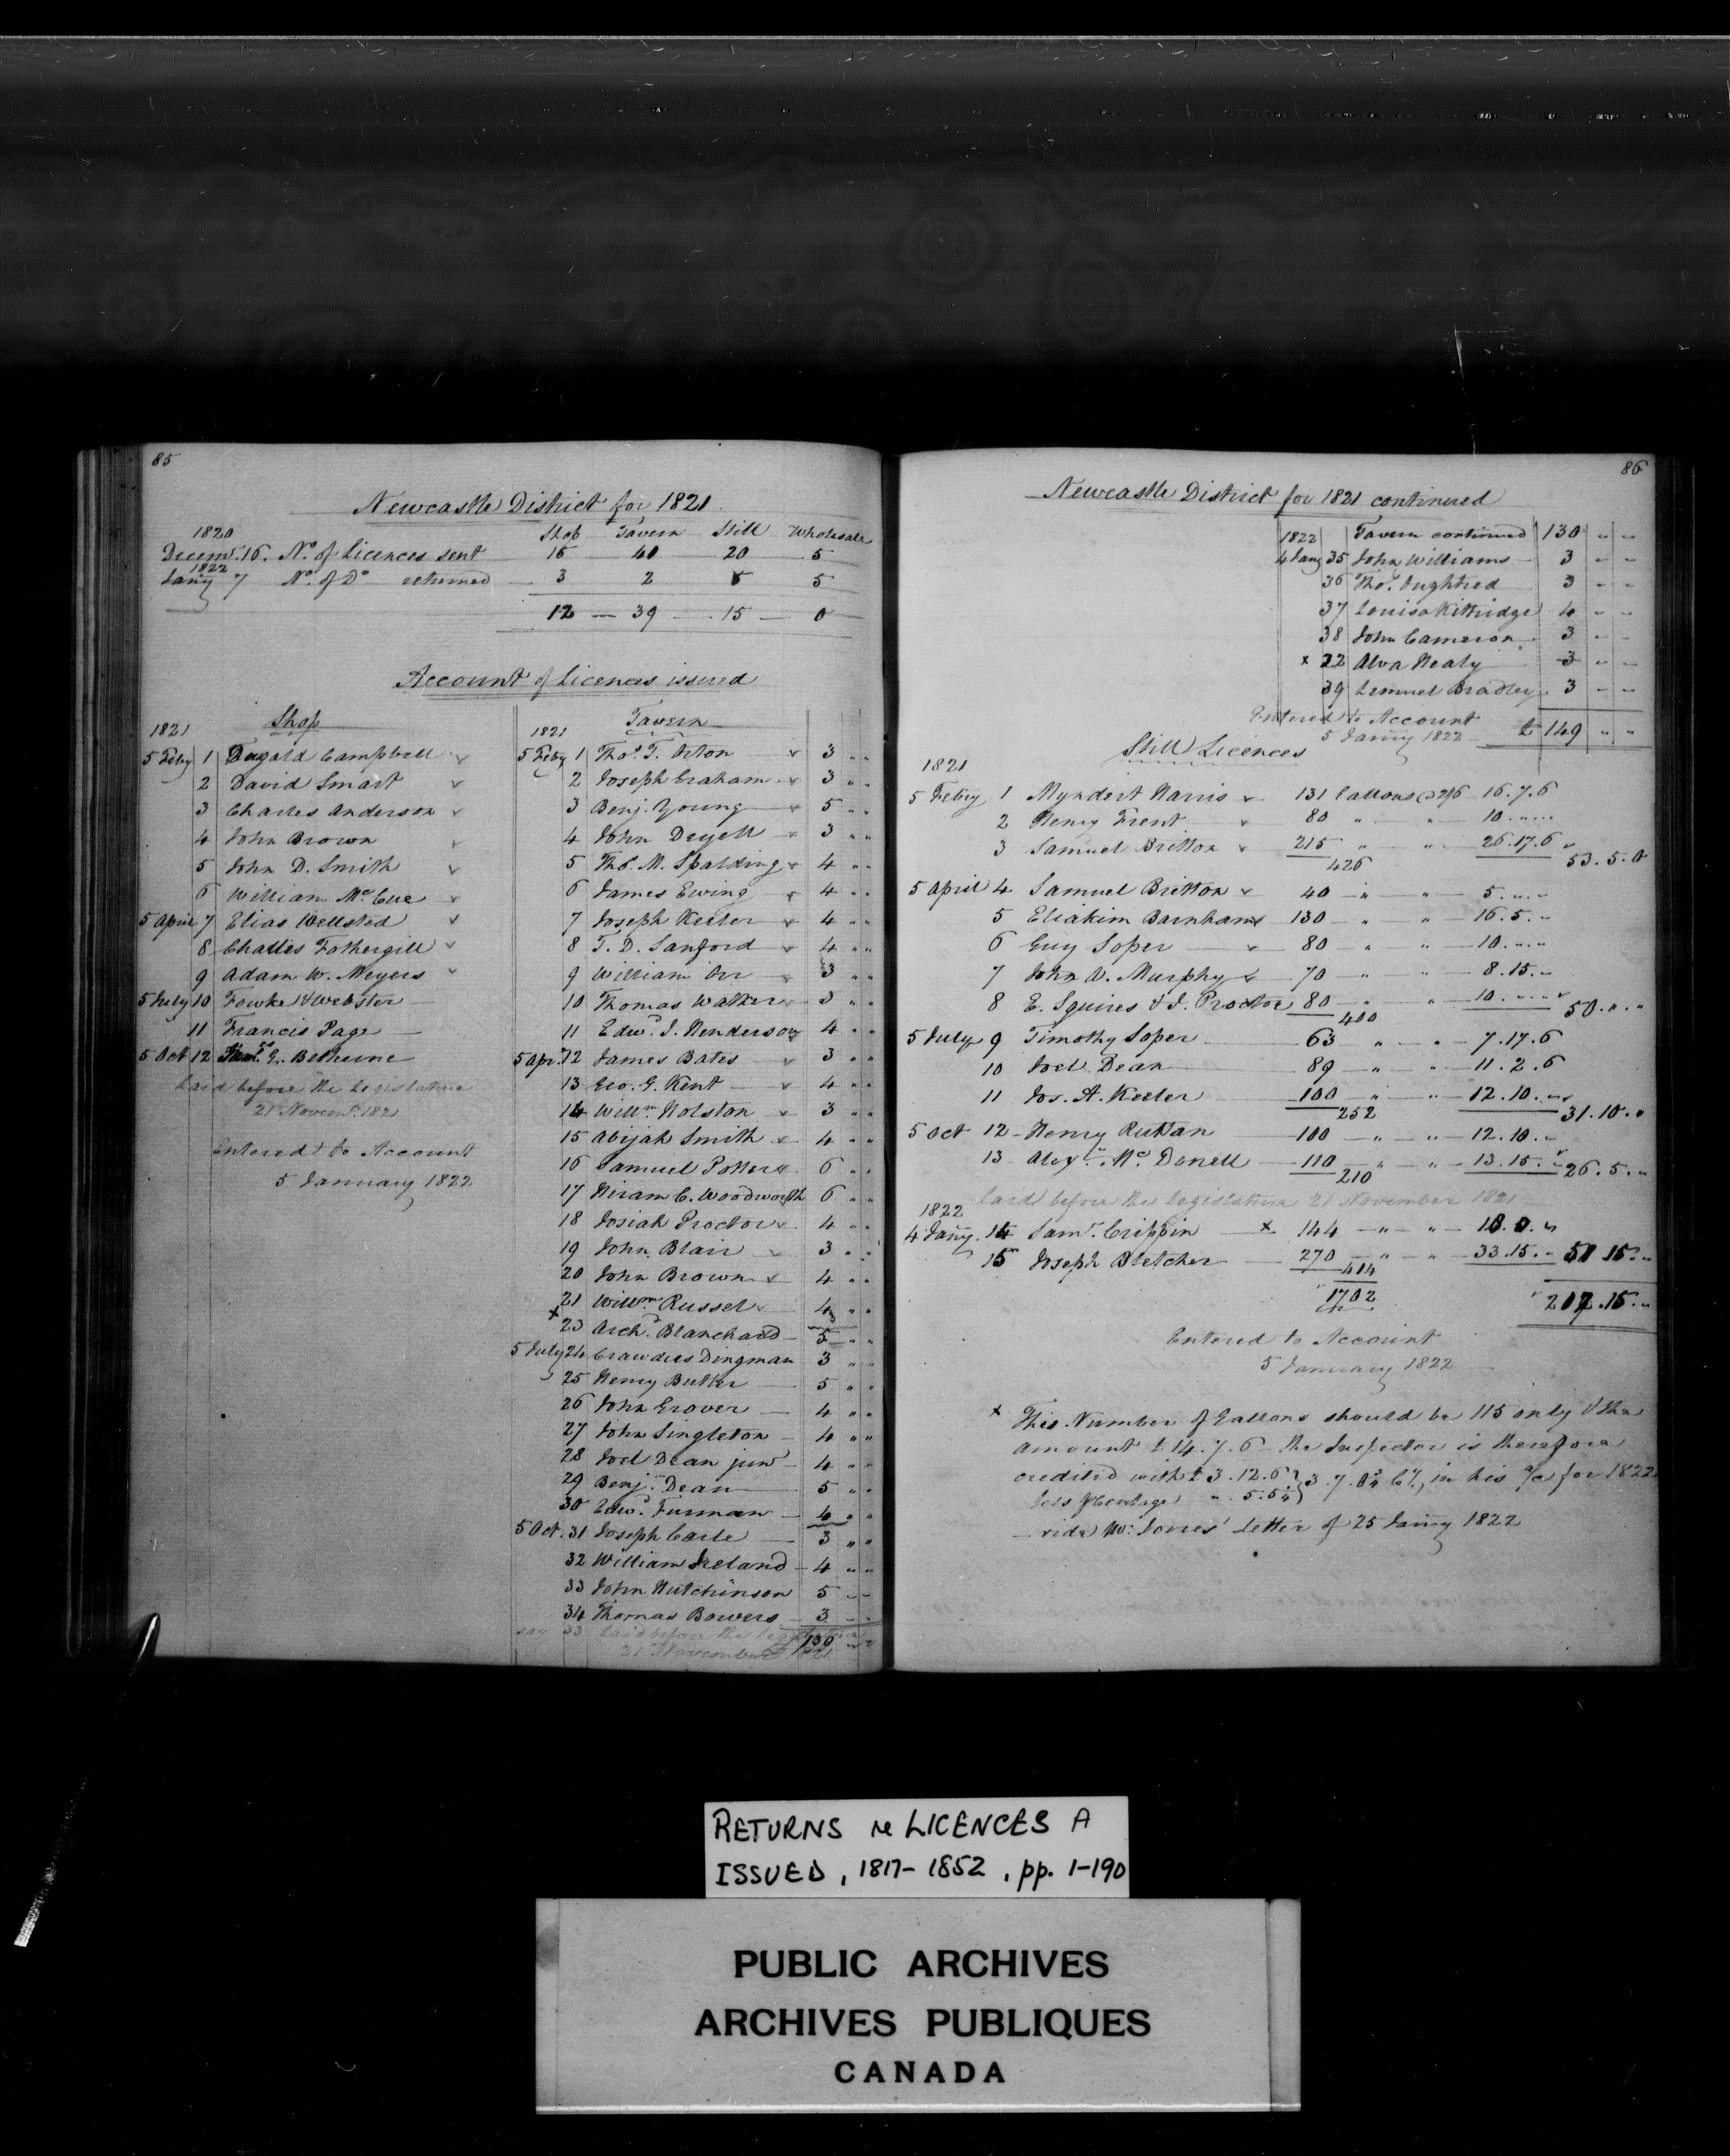 85
Newcastle District for 1821
1820 Shop Tavern Still Wholesale
Decemr. 16. No. of Licences sent 15 40 20 5
1822
Jany 7 No. of Do returned 3 2 5 5
12 — 39 — 15 — 0
Account of Licences issued
1821 Shop
5 Feby 1 Dugald Campbell
2 David Smart
3 Charles Anderson
4 John Brown
5 John D. Smith
6 William McCue
5 April 7 Elias Wellsted
8 Charles Fothergill
9 Adam W. Meyers
5 July 10 Fowke & Webster
11 Francis Page
5 Oct 12 G. Bethune
Laid before the Legislature
21 Novemr. 1821
Entered to Account
5 January 1822
1821 Tavern
5 Feby 1 Thos. T. Orton 3 " "
2 Joseph Graham 3 " "
3 Benj. Young 5 " "
4 John Deyell 3 " "
5 Tho. M. Spalding 4 " "
6 James Ewing 4 " "
7 Joseph Keeler 4 " "
8 T. D. Sanford 4 " "
9 William Orr 3 " "
10 Thomas Walker 3 " "
11 Edwd. S. Henderson 4 " "
5 Apr. 12 James Bates 3 " "
13 Geo. G. Kent 4 " "
14 Willm Holston 3 " "
15 Abijah Smith 4 " "
16 Samuel Potter 6 " "
17 Hiram C. Woodworth 6 " "
18 Josiah Proctor 4 " "
19 John Blair 3 " "
20 John Brown 4 " "
21 Willm. Russel 4 " "
x 23 Archd. Blanchard 5 " "
5 July 24 Dingman 3 " "
25 Henry Butler 5 " "
26 John Grover 4 " "
27 John Singleton 4 " "
28 Joel Dean junr 4 " "
29 Benj. Dean 5 " "
30 Edwd. Furman 6 " "
5 Oct. 31 Joseph Carle 3 " "
32 William Ireland 4 " "
33 John Hutchinson 5 " "
34 Thomas Bowers 3 " "
say 33 Laid before the Legislature 130 " "
21 November 1821
86
Newcastle District for 1821 continued
1822 Tavern continued 130 " "
4 Jany 35 John Williams 3 " "
36 Thos. Oughtred 3 " "
37 Louisa Kittridge 4 " "
38 John Cameron 3 " "
x 22 Alva Healy 3 " "
39 Lemuel Bradley 3 " "
Entered to Account
5 Jany 1822 £ 149 " "
Still Licences
1821
5 Feby 1 Myndert Harris 131 Gallons @ 2/6 16.7.6
2 Henry Trent 80 " " 10 " "
3 Samuel Britton 215 " " 26.17.6
426 53.5.0
5 April 4 Samuel Britton 40 " " 5 " "
5 Eliakim Barnham 130 " " 16.5."
6 Guy Soper 80 " " 10 " "
7 John V. Murphy 70 " " 8.15."
8 E. Squires & J. Proctor 80 " " 10 " "
400 50 " "
5 July 9 Timothy Soper 63 " " 7.17.6
10 Joel Dean 89 " " 11.2.6
11 Jos. A. Keeler 100 " " 12.10."
252 31.10."
5 Oct 12 Henry Ruttan 100 " " 12.10."
13 Alexr. McDonell 110 " " 13.15."
210 26.5."
Laid before the Legislature 21 November 1821
1822
4 Jany. 14 Saml. Crippin x 144 " " 18.0."
15 Joseph Bletcher 270 " " 33.15." 51.15."
414
1702 212.15."
Entered to Account
5 January 1822
x This Number of Gallons should be 115 only & the
amount £ 14.7.6 the Inspector is therefore
credited with £ 3.12.6 } 3.7.0¾ Cy, in his a/c for 1822
less p Centage " 5.5¼
vide Mr. Jones' Letter of 25 Jany 1822
RETURNS re LICENCES A
ISSUED, 1817-1852, pp. 1-190
PUBLIC ARCHIVES
ARCHIVES PUBLIQUES
CANADA